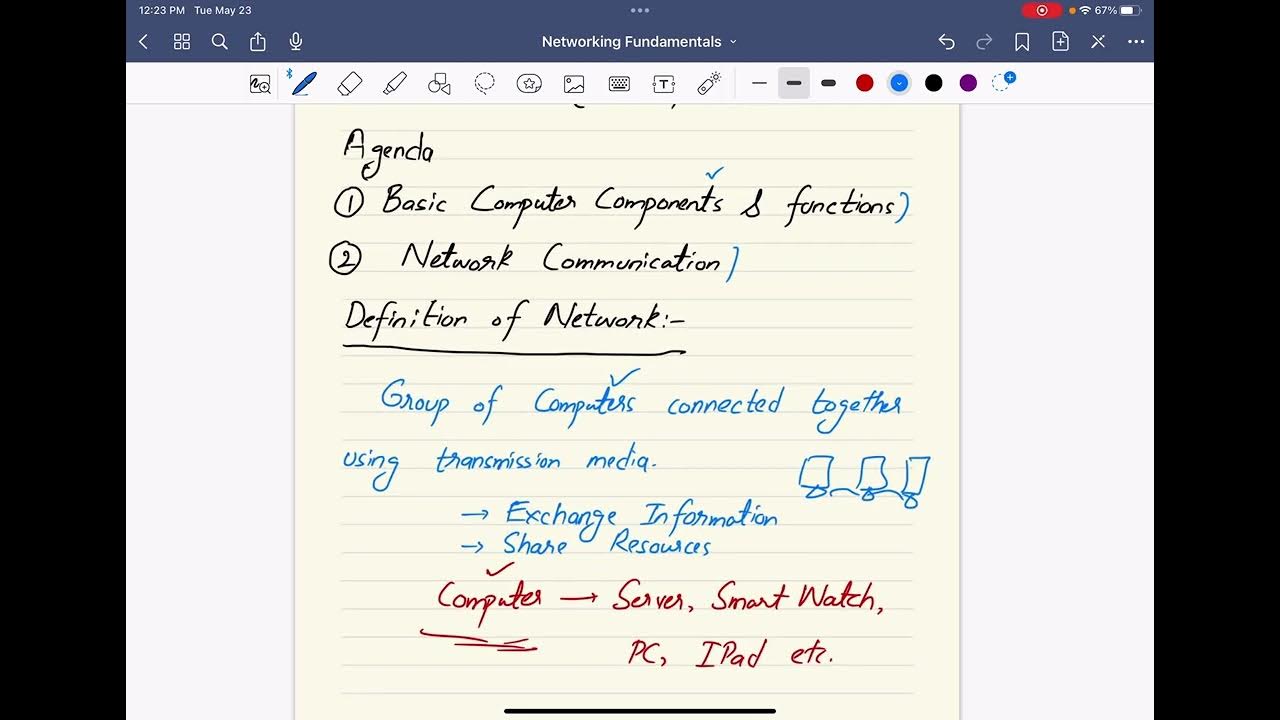 12:23 PM Tue May 23
67%
Networking Fundamentals
T
Agenda
① Basic Computer Components & functions)
② Network Communication)
Definition of Network:-
Group of Computers connected together
using transmission media.
→ Exchange Information
→ Share Resources
Computer → Server, Smart Watch,
PC, IPad etc.